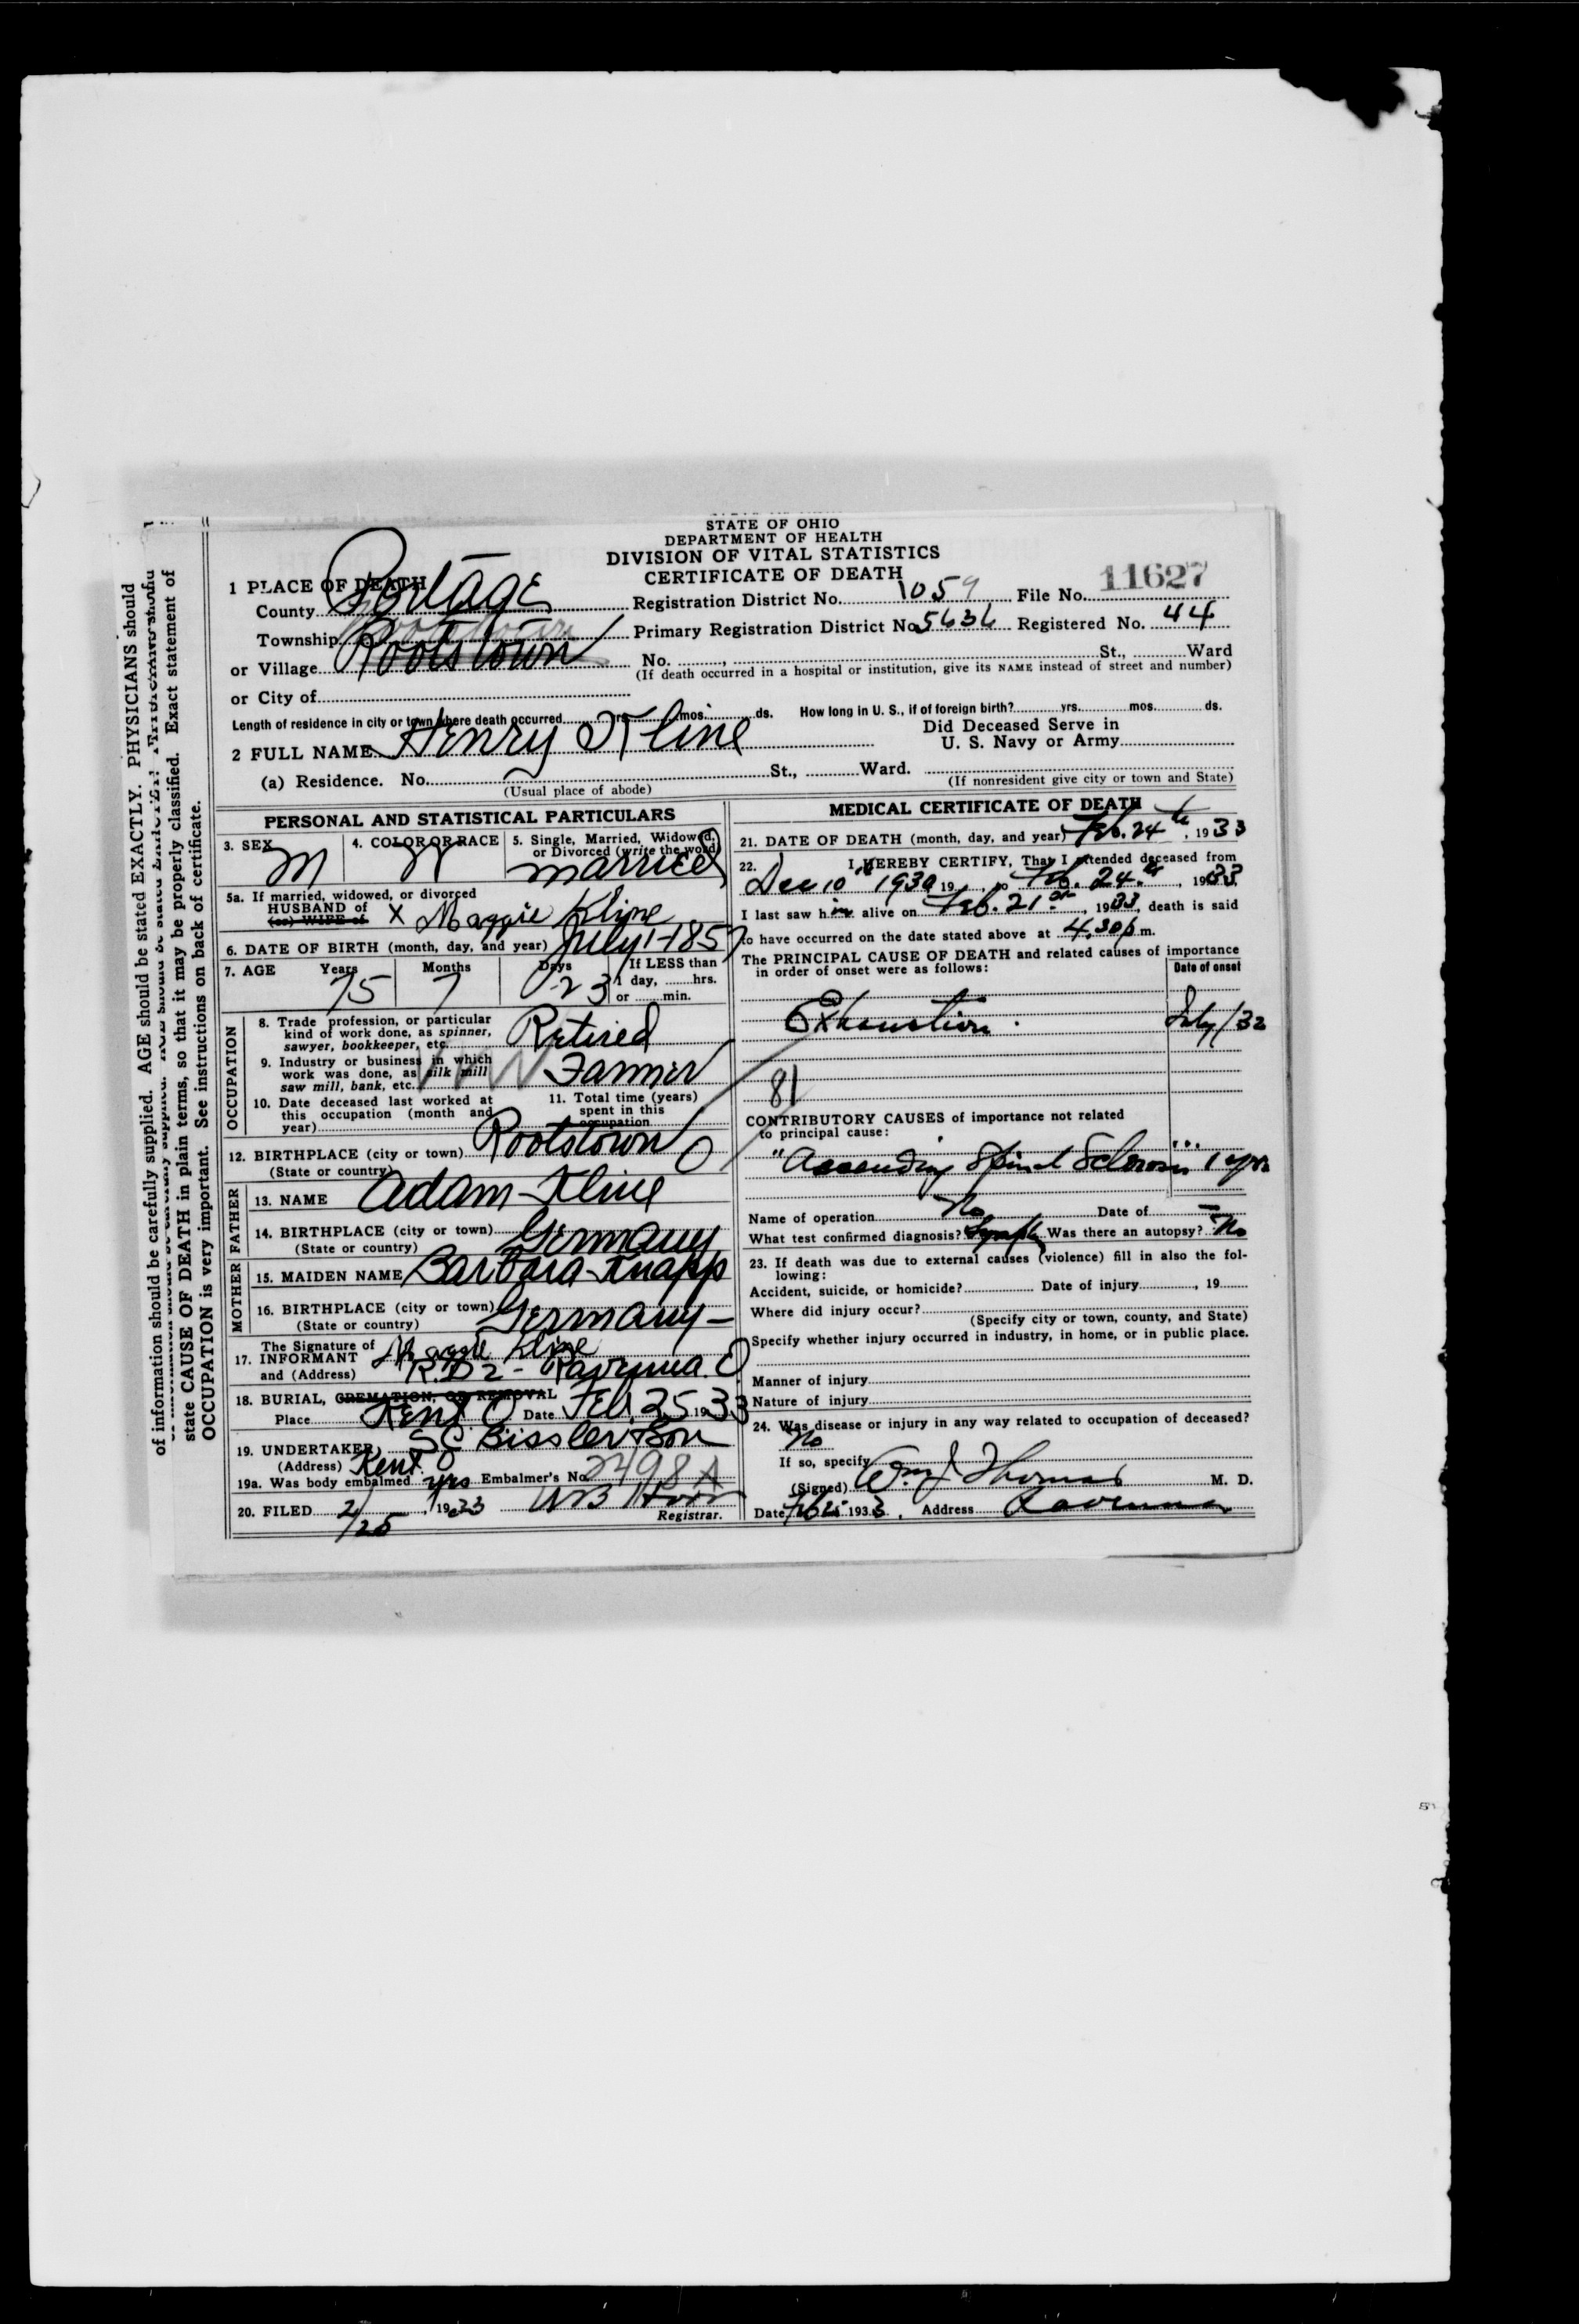 STATE OF OHIO
DEPARTMENT OF HEALTH
DIVISION OF VITAL STATISTICS
CERTIFICATE OF DEATH
11627
1 PLACE OF DEATH
County Portage Registration District No. 1059 File No.
Township Rootstown Primary Registration District No. 5636 Registered No. 44
or Village Rootstown No. , St., Ward
(If death occurred in a hospital or institution, give its NAME instead of street and number)
or City of
Length of residence in city or town where death occurred yrs. mos. ds. How long in U. S., if of foreign birth? yrs. mos. ds.
2 FULL NAME Henry Kline Did Deceased Serve in
U. S. Navy or Army
(a) Residence. No. St., Ward.
(Usual place of abode) (If nonresident give city or town and State)
PERSONAL AND STATISTICAL PARTICULARS
3. SEX M 4. COLOR OR RACE W 5. Single, Married, Widowed, or Divorced (write the word) married
5a. If married, widowed, or divorced
HUSBAND of X Maggie Kline
(or) WIFE of
6. DATE OF BIRTH (month, day, and year) July 1-1857
7. AGE Years 75 Months 7 Days 23 If LESS than
1 day, hrs.
or min.
OCCUPATION
8. Trade profession, or particular
kind of work done, as spinner,
sawyer, bookkeeper, etc. Retired
9. Industry or business in which
work was done, as silk mill
saw mill, bank, etc. Farmer
10. Date deceased last worked at
this occupation (month and
year)
11. Total time (years)
spent in this
occupation
12. BIRTHPLACE (city or town) Rootstown O
(State or country)
FATHER
13. NAME Adam Kline
14. BIRTHPLACE (city or town) Germany
(State or country)
MOTHER
15. MAIDEN NAME Barbara Knapp
16. BIRTHPLACE (city or town) Germany
(State or country)
The Signature of
17. INFORMANT Maggie Kline
and (Address) R.D 2 - Ravenna. O
18. BURIAL, CREMATION, OR REMOVAL
Place Kent O Date Feb. 25 1933
19. UNDERTAKER SC Bissler & Son
(Address) Kent O
19a. Was body embalmed yes Embalmer's No. 2498 A
20. FILED 2/25, 1933
Registrar.
MEDICAL CERTIFICATE OF DEATH
21. DATE OF DEATH (month, day, and year) Feb. 24th, 1933
22. I HEREBY CERTIFY, That I attended deceased from
Dec 10 1930 19 , to Feb. 24th, 1933
I last saw him alive on Feb. 21st, 1933, death is said
to have occurred on the date stated above at 4.30 p m.
The PRINCIPAL CAUSE OF DEATH and related causes of importance
in order of onset were as follows: Date of onset
Exhaustion. July/32
81
CONTRIBUTORY CAUSES of importance not related
to principal cause:
"Ascending Spinal Sclerosis 1 yrs
Name of operation No Date of —
What test confirmed diagnosis? Was there an autopsy? No
23. If death was due to external causes (violence) fill in also the fol-
lowing:
Accident, suicide, or homicide? Date of injury , 19
Where did injury occur?
(Specify city or town, county, and State)
Specify whether injury occurred in industry, in home, or in public place.
Manner of injury
Nature of injury
24. Was disease or injury in any way related to occupation of deceased?
No
If so, specify
(Signed) Wm J Thomas M. D.
Date Feb 25 1933, Address Ravenna
of information should be carefully supplied. AGE should be stated EXACTLY. PHYSICIANS should
state CAUSE OF DEATH in plain terms, so that it may be properly classified. Exact statement of
OCCUPATION is very important. See instructions on back of certificate.